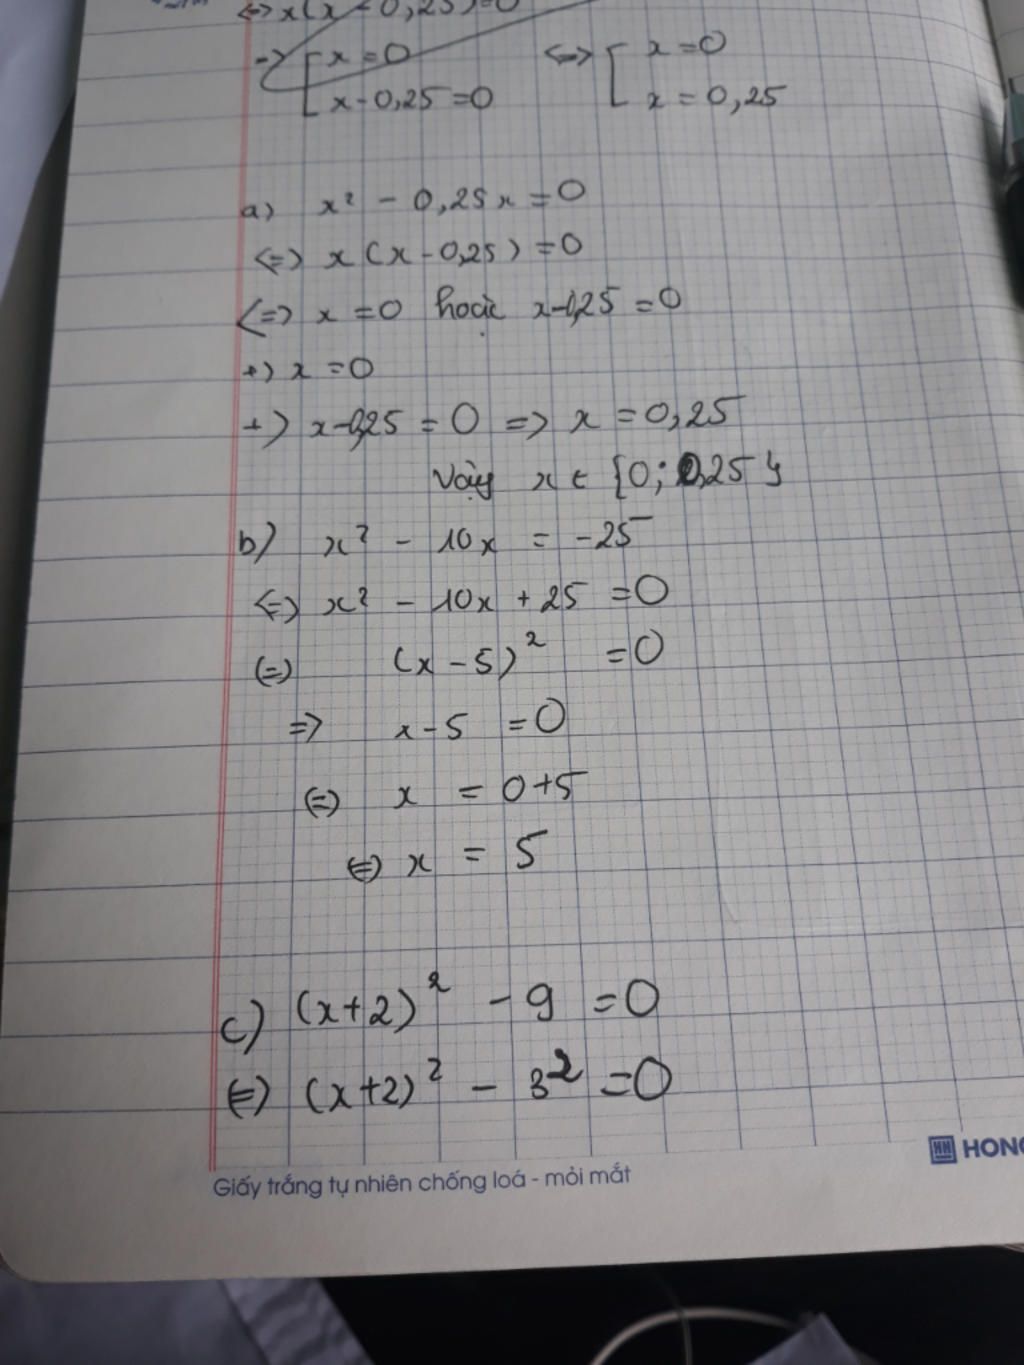 ⇔ x(x - 0,25) = 0
=> [ x = 0 ⇔ [ x = 0
x - 0,25 = 0 x = 0,25
a) x² - 0,25x = 0
⇔ x(x - 0,25) = 0
⇔ x = 0 hoặc x - 0,25 = 0
+) x = 0
+) x - 0,25 = 0 => x = 0,25
Vậy x ∈ {0; 0,25}
b) x² - 10x = -25
⇔ x² - 10x + 25 = 0
⇔ (x - 5)² = 0
=> x - 5 = 0
⇔ x = 0 + 5
⇔ x = 5
c) (x+2)² - 9 = 0
⇔ (x+2)² - 3² = 0
HONG
Giấy trắng tự nhiên chống loá - mỏi mắt